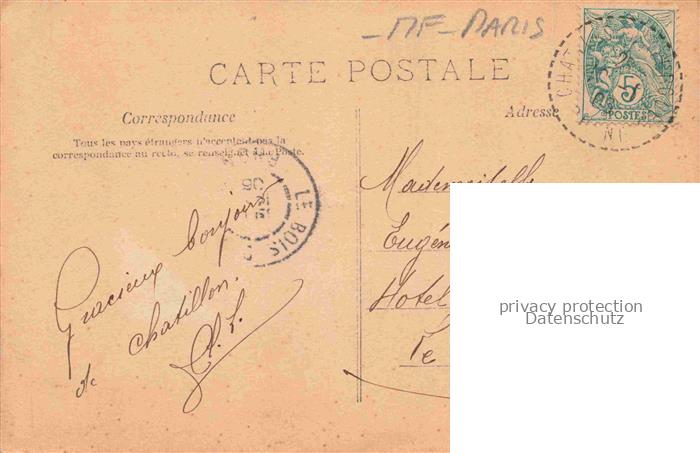 -MF-PARIS
CARTE POSTALE
Correspondance
Adresse
Tous les pays étrangers n'acceptent pas la
correspondance au recto, se renseigner à la Poste.
CHAT
5
POSTES
LE BOIS D
06
Gracieux bonjour
de Chatillon.
Mademoiselle
Eugén
Hotel
Le
privacy protection
Datenschutz